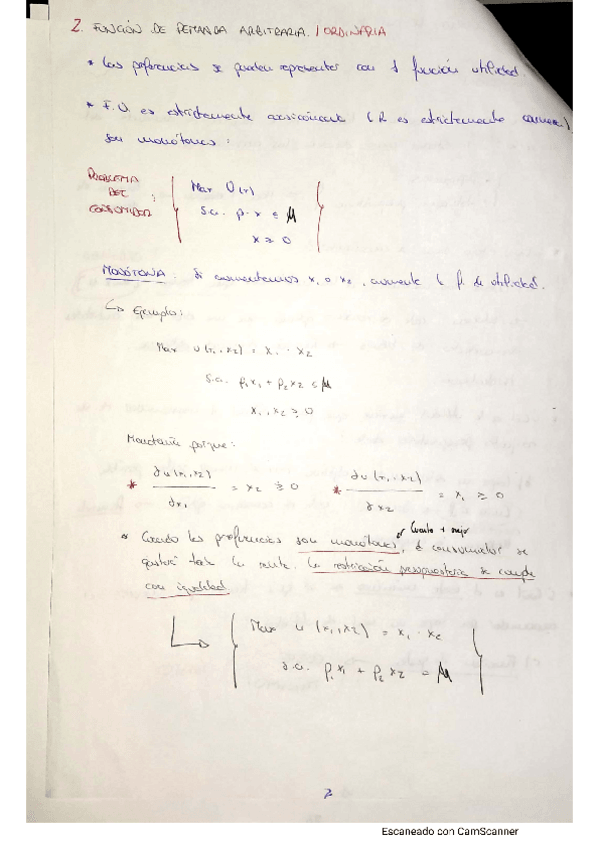 2. FUNCIÓN DE DEMANDA ARBITRARIA / ORDINARIA
* Las preferencias se pueden representar con 1 función utilidad.
* F.U. es estrictamente ( R es estrictamente convexa)
son monótonas :
PROBLEMA DEL CONSUMIDOR :
Max U(x)
s.a. p · x ≤ M
x ≥ 0
MONÓTONA : Si aumentamos x₁ o x₂, aumenta la f. de utilidad.
↳ Ejemplo:
Max u(x₁, x₂) = x₁ · x₂
s.a. p₁x₁ + p₂x₂ ≤ M
x₁, x₂ ≥ 0
Monótona porque:
* ∂u(x₁,x₂) / ∂x₁ = x₂ ≥ 0 * ∂u(x₁,x₂) / ∂x₂ = x₁ ≥ 0
Cuanto + mejor
* Cuando las preferencias son monótonas, el consumidor se
gastará toda la renta. La restricción presupuestaria se cumple
con igualdad
↳ Max u(x₁,x₂) = x₁ · x₂
s.a. p₁x₁ + p₂x₂ = M
Escaneado con CamScanner